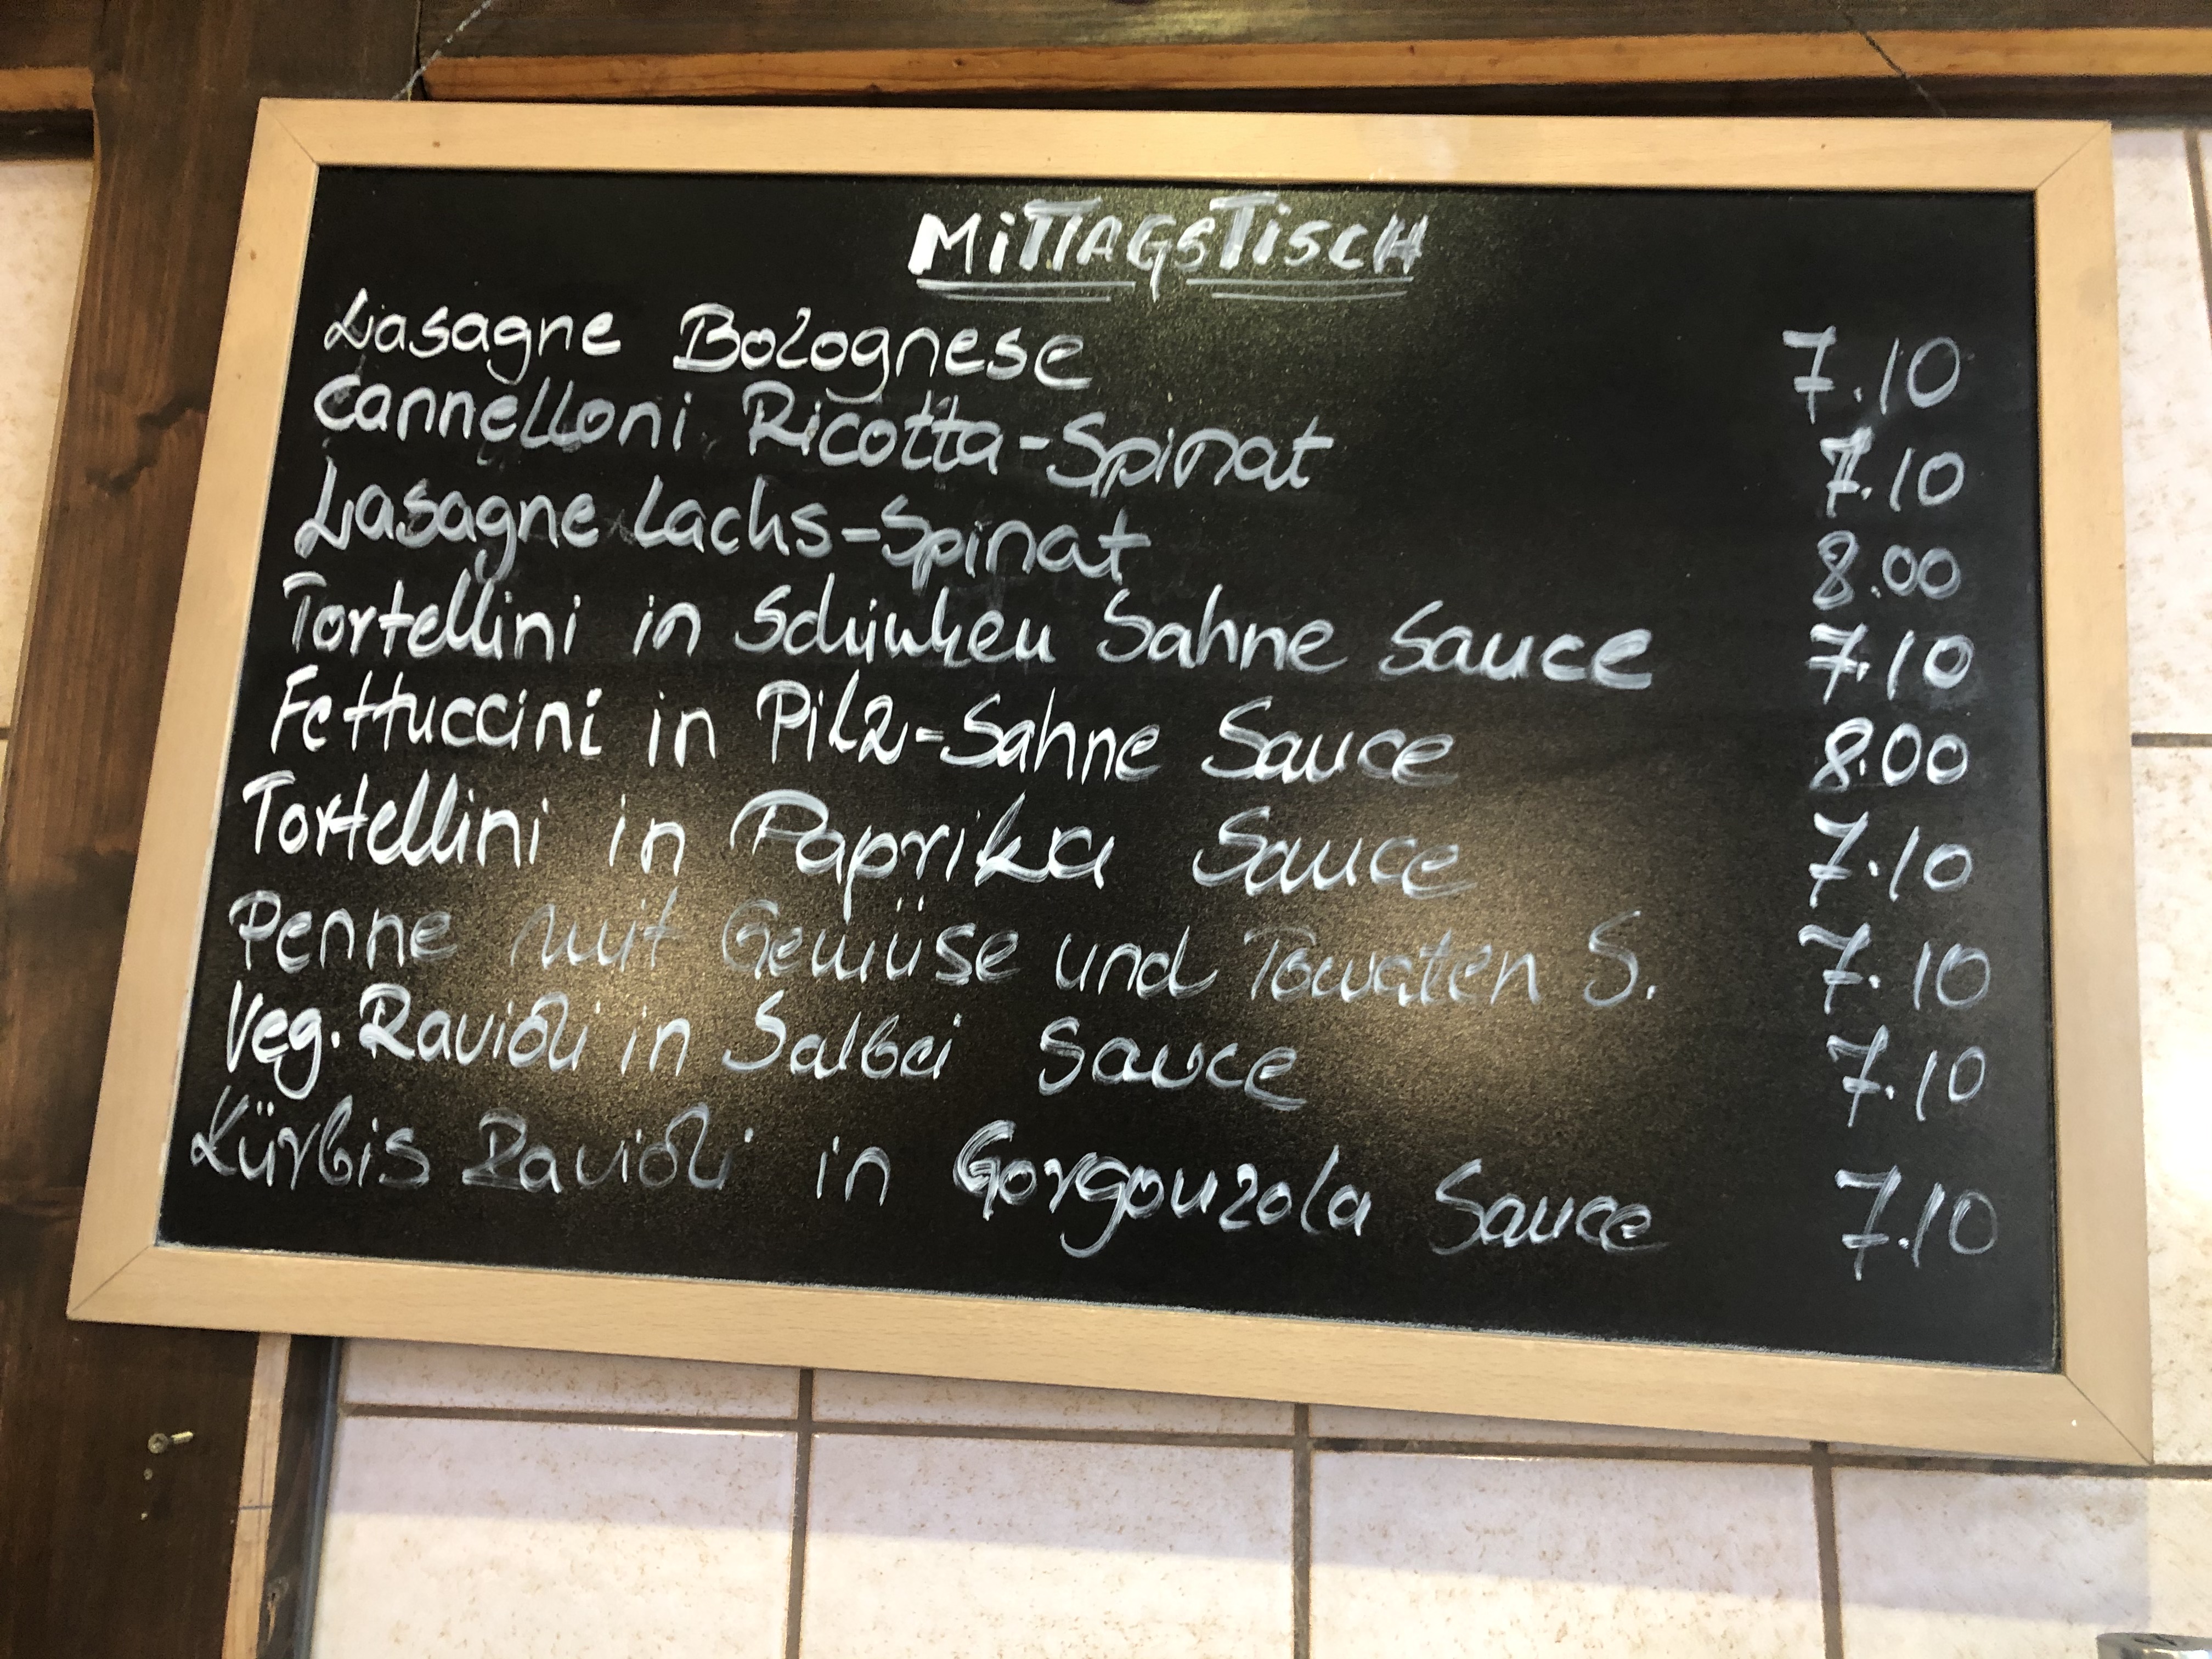 MiTTAGSTiSCH
Lasagne Bolognese 7.10
Cannelloni Ricotta-Spinat 7.10
Lasagne Lachs-Spinat 8.00
Tortellini in Schinken Sahne Sauce 7.10
Fettuccini in Pilz-Sahne Sauce 8.00
Tortellini in Paprika Sauce 7.10
Penne mit Gemüse und Tomaten S. 7.10
Veg. Ravioli in Salbei Sauce 7.10
Kürbis Ravioli in Gorgonzola Sauce 7.10